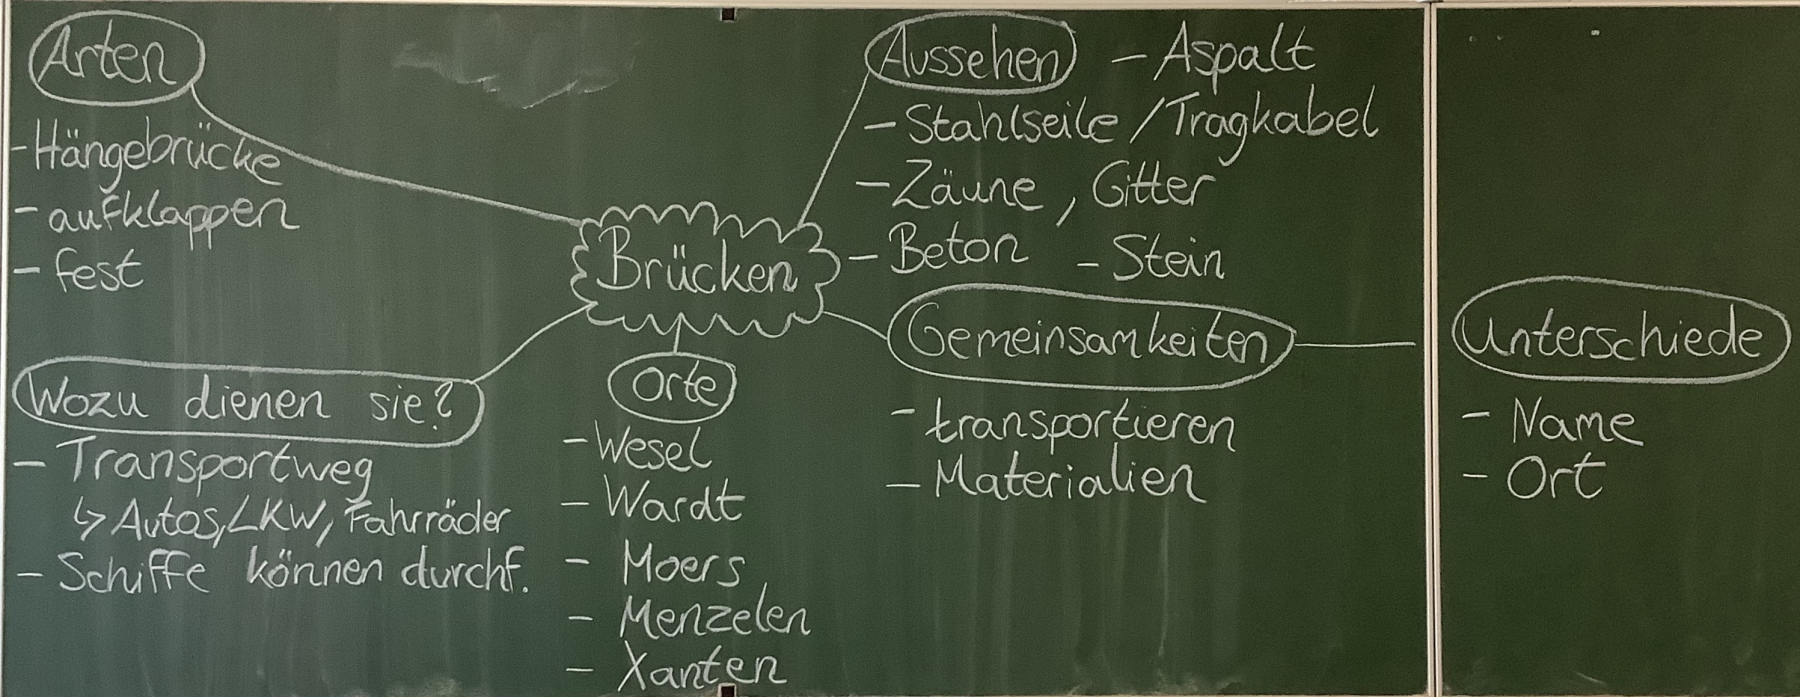 Arten
- Hängebrücke
- aufklappen
- fest
Wozu dienen sie?
- Transportweg
↳ Autos, LKW, Fahrräder
- Schiffe können durchf.
Brücken
Orte
- Wesel
- Wardt
- Moers
- Menzelen
- Xanten
Aussehen - Aspalt
- Stahlseile / Tragkabel
- Zäune, Gitter
- Beton - Stein
Gemeinsamkeiten
- transportieren
- Materialien
Unterschiede
- Name
- Ort